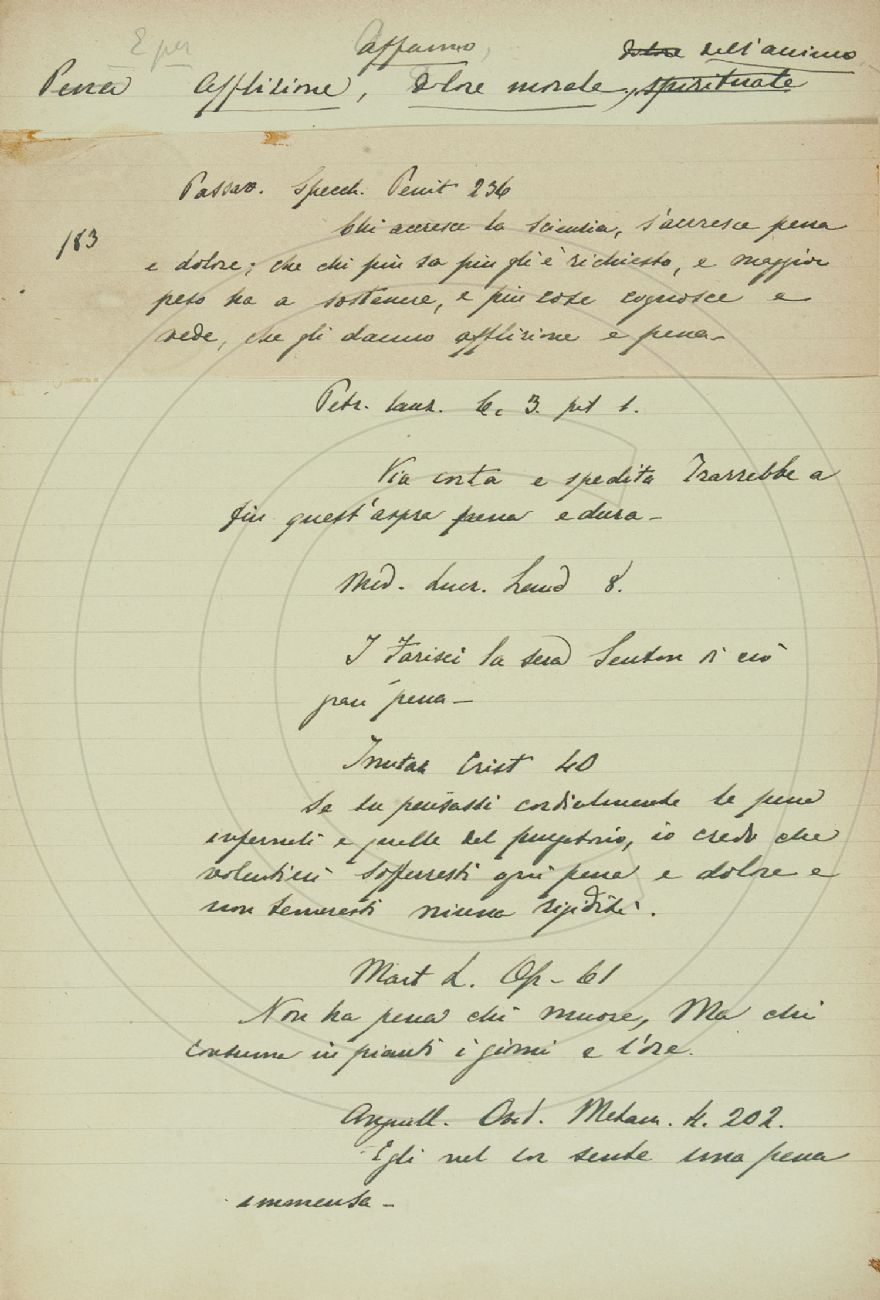 E per
affanno, dolore dell'animo
Pena afflizione, dolore morale, spirituale
Passav. Specch. Penit 236
183
Chi accresce la scienzia, s'accresce pena
e dolore; che chi più sa più gli è richiesto, e maggior
peso ha a sostenere, e più cose cognosce e
vede, che gli danno afflizione e pena -
Petr. 3. 1.
Via corta e spedita Trarrebbe a
fin quest'aspra pena e dura -
Med. Laud 8.
I Farisei la sera Senton di ciò
gran pena -
Imitaz Crist 40
Se tu pensassi cordialmente le pene
infernali e quelle del purgatorio, io credo che
volentieri sofferresti ogni pena e dolore e
non temeresti niuna rigidità.
Mart L. Op - 61
Non ha pena chi muore, Ma chi
consuma in pianti i giorni e l'ore.
Anguill. Ovid. Metam. 4. 202.
Egli nel cor sente una pena
immensa -